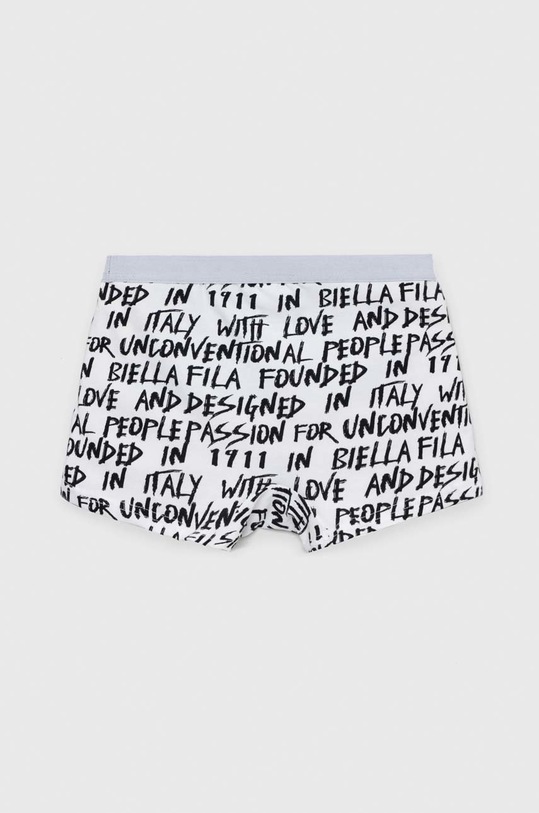 NDED IN 1911 IN BIELLA FILA
IN ITALY WITH LOVE AND DES
FOR UNCONVENTIONAL PEOPLE PASS
IN BIELLA FILA FOUNDED IN 19
LOVE AND DESIGNED IN ITALY WITH
AL PEOPLE PASSION FOR UNCONVENTI
OUNDED IN 1911 IN BIELLA FILA
IN ITALY WITH LOVE AND DESIGN
N FOR UNCONVENTION PEOPLE PASS